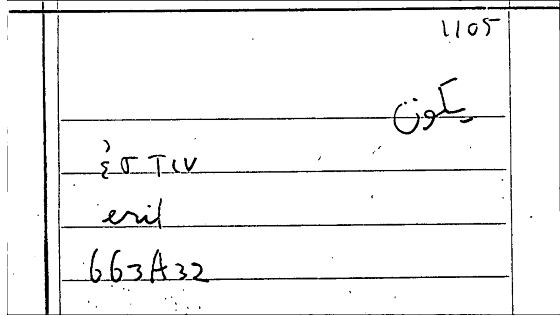 1105
يكون
ἐστιν
eril
663A32